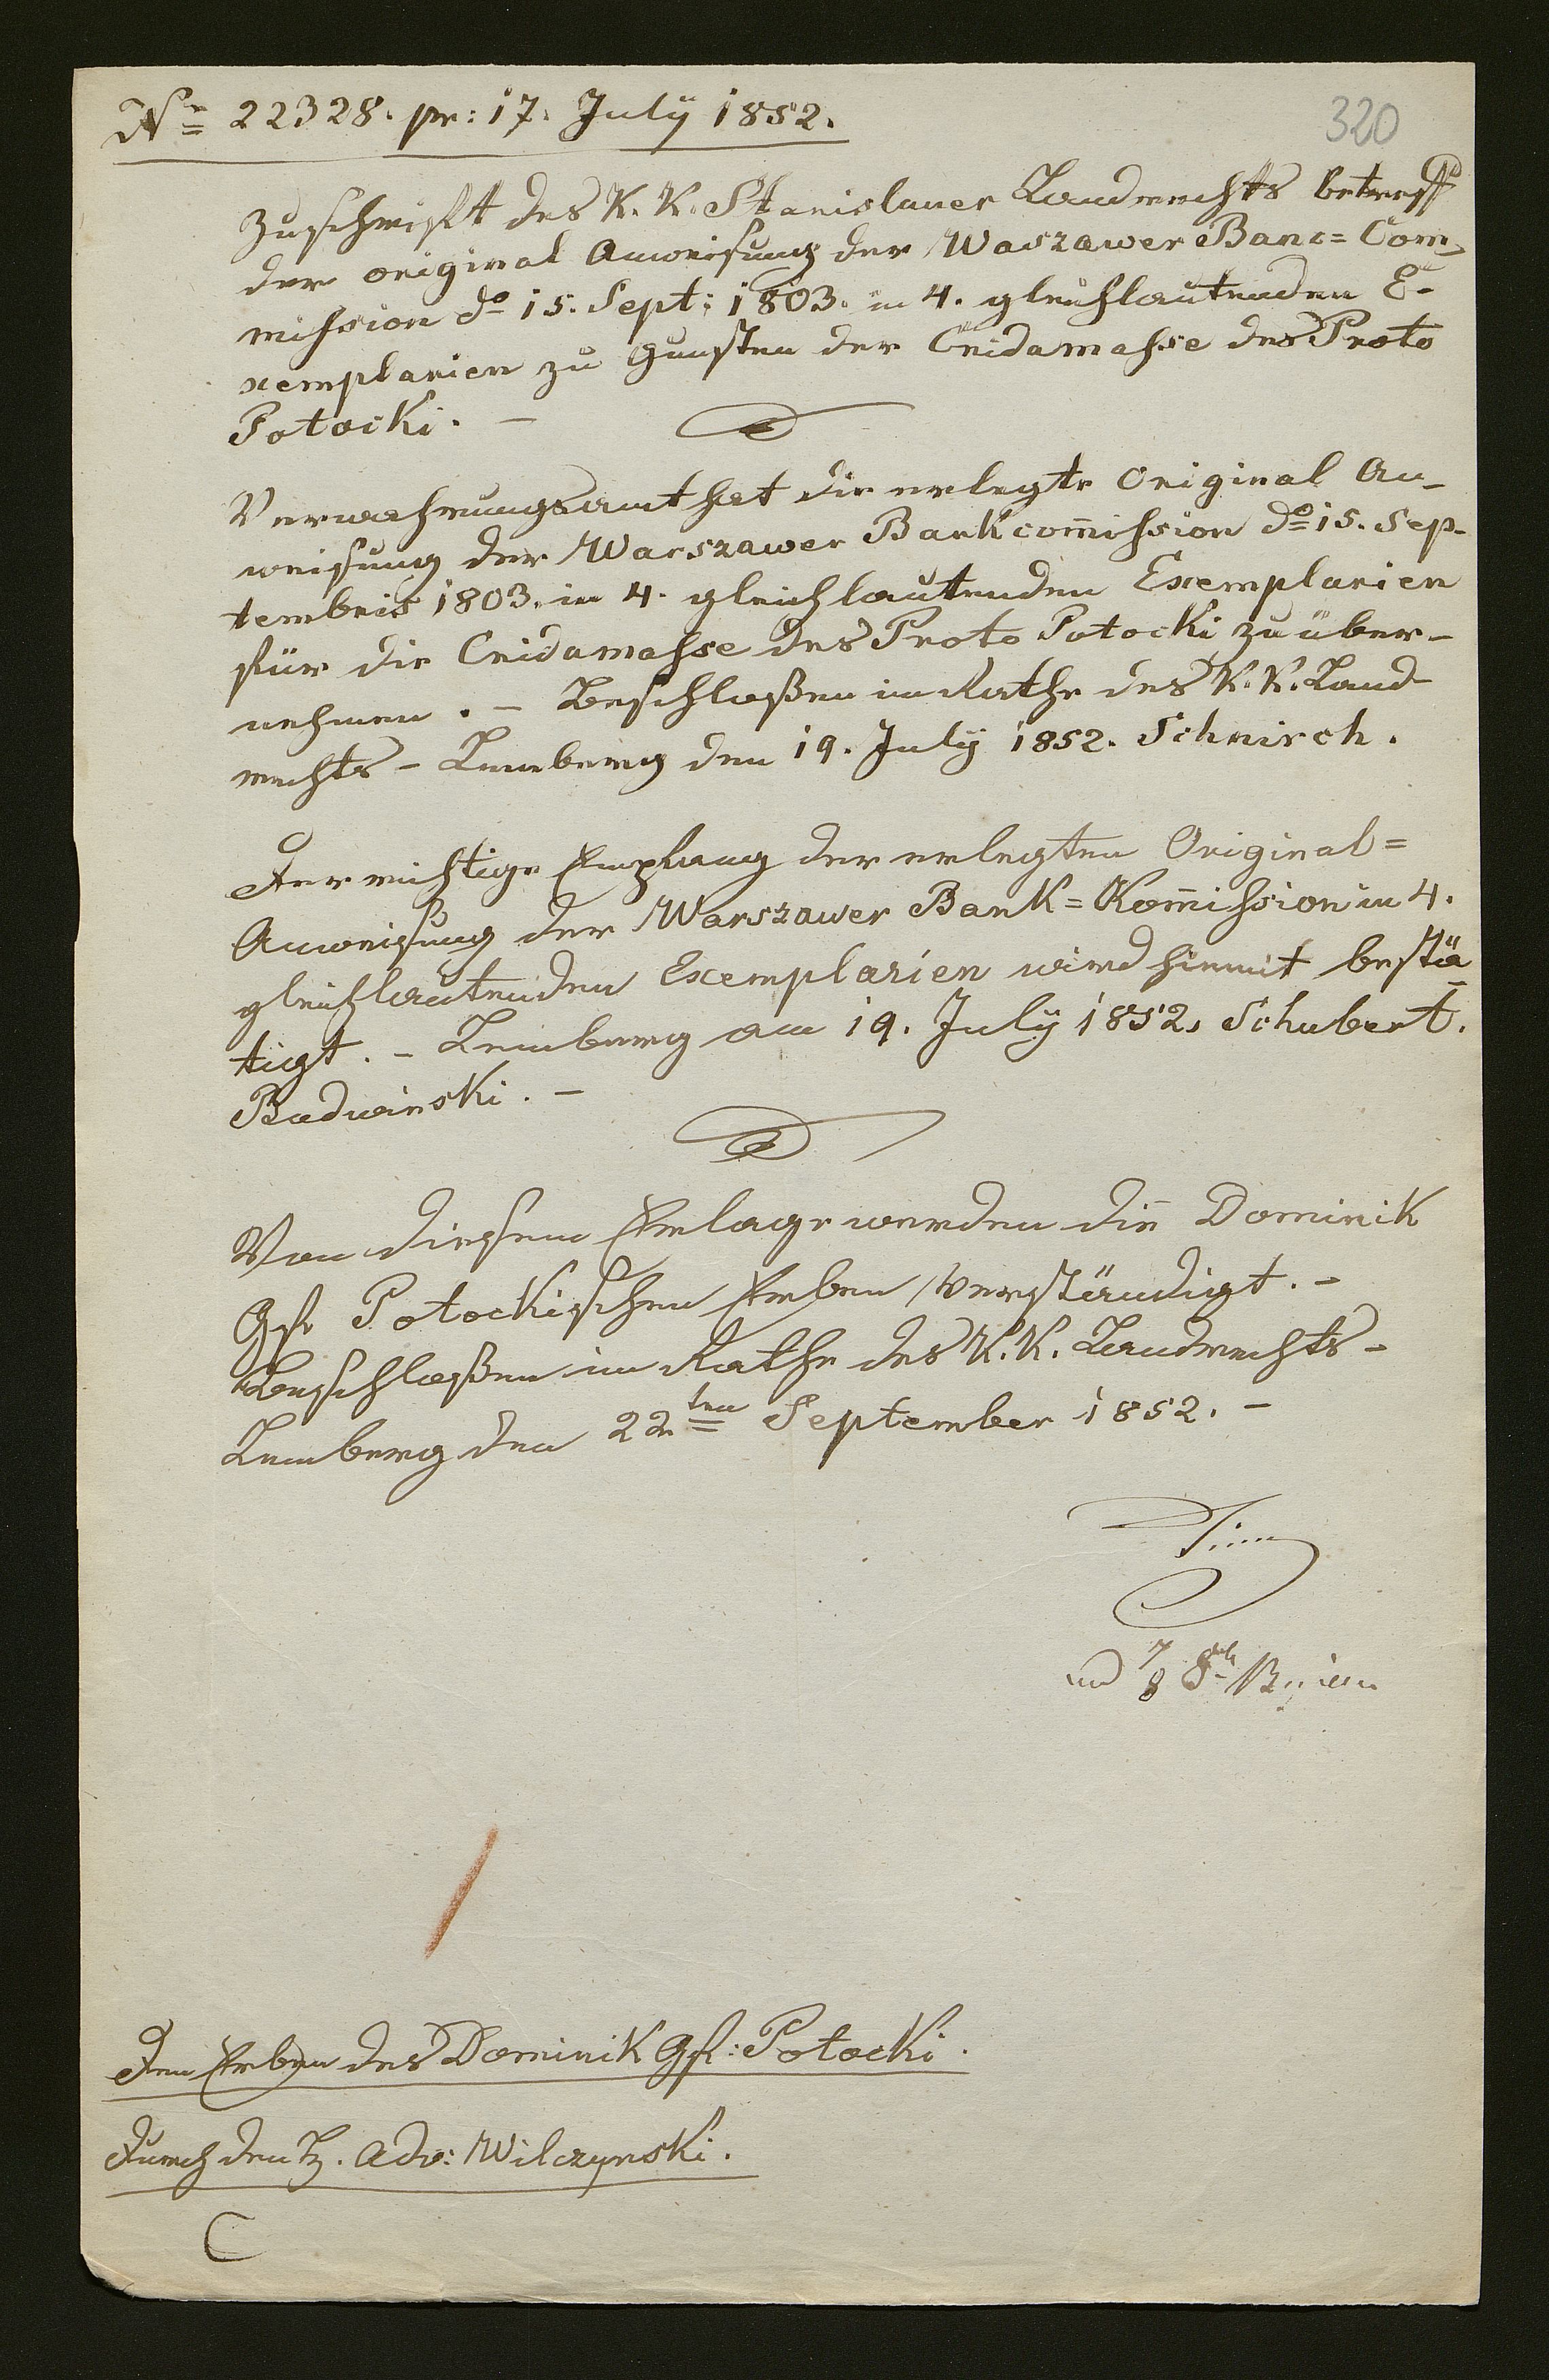 No 22328. pr: 17. July 1852.
320
Zuschrift des K. K. Stanislauer Landrechts betreff
der original Anweisung der Waszawer Banc= Com
mission do 15. Sept: 1803. in 4. gleichlautenden E-
xemplarien zu Gunsten der Cridamasse des Proto
Potocki. -
Verwahrungsamt hat die erlegte Original An-
weisung der Warszawer Bankcom̄ission do 15. Sep-
tembris 1803. in 4. gleichlautenden Exemplarien
für die Cridamasse des Proto Potocki zu über-
nehmen. - Beschloßen im Rathe des K. K. Land-
rechts - Lemberg den 19. July 1852. Schnirch.
Der richtige Empfang der erlegten Original=
Anweisung der Warszawer Bank= Kom̄ission in 4.
gleichlautenden Exemplarien wird hiemit bestä-
tigt. - Lemberg am 19. July 1852. Schubert.
Budwinski. -
Von diesem Erlage werden die Dominik
Gfr Potockischen Erben verständigt. -
Beschloßen im Rathe des K. K. Landrechts -
Lemberg den 22ten September 1852. -
Den Erben des Dominik Gf: Potocki.
Durch den H. Adv: Wilczynski.
C